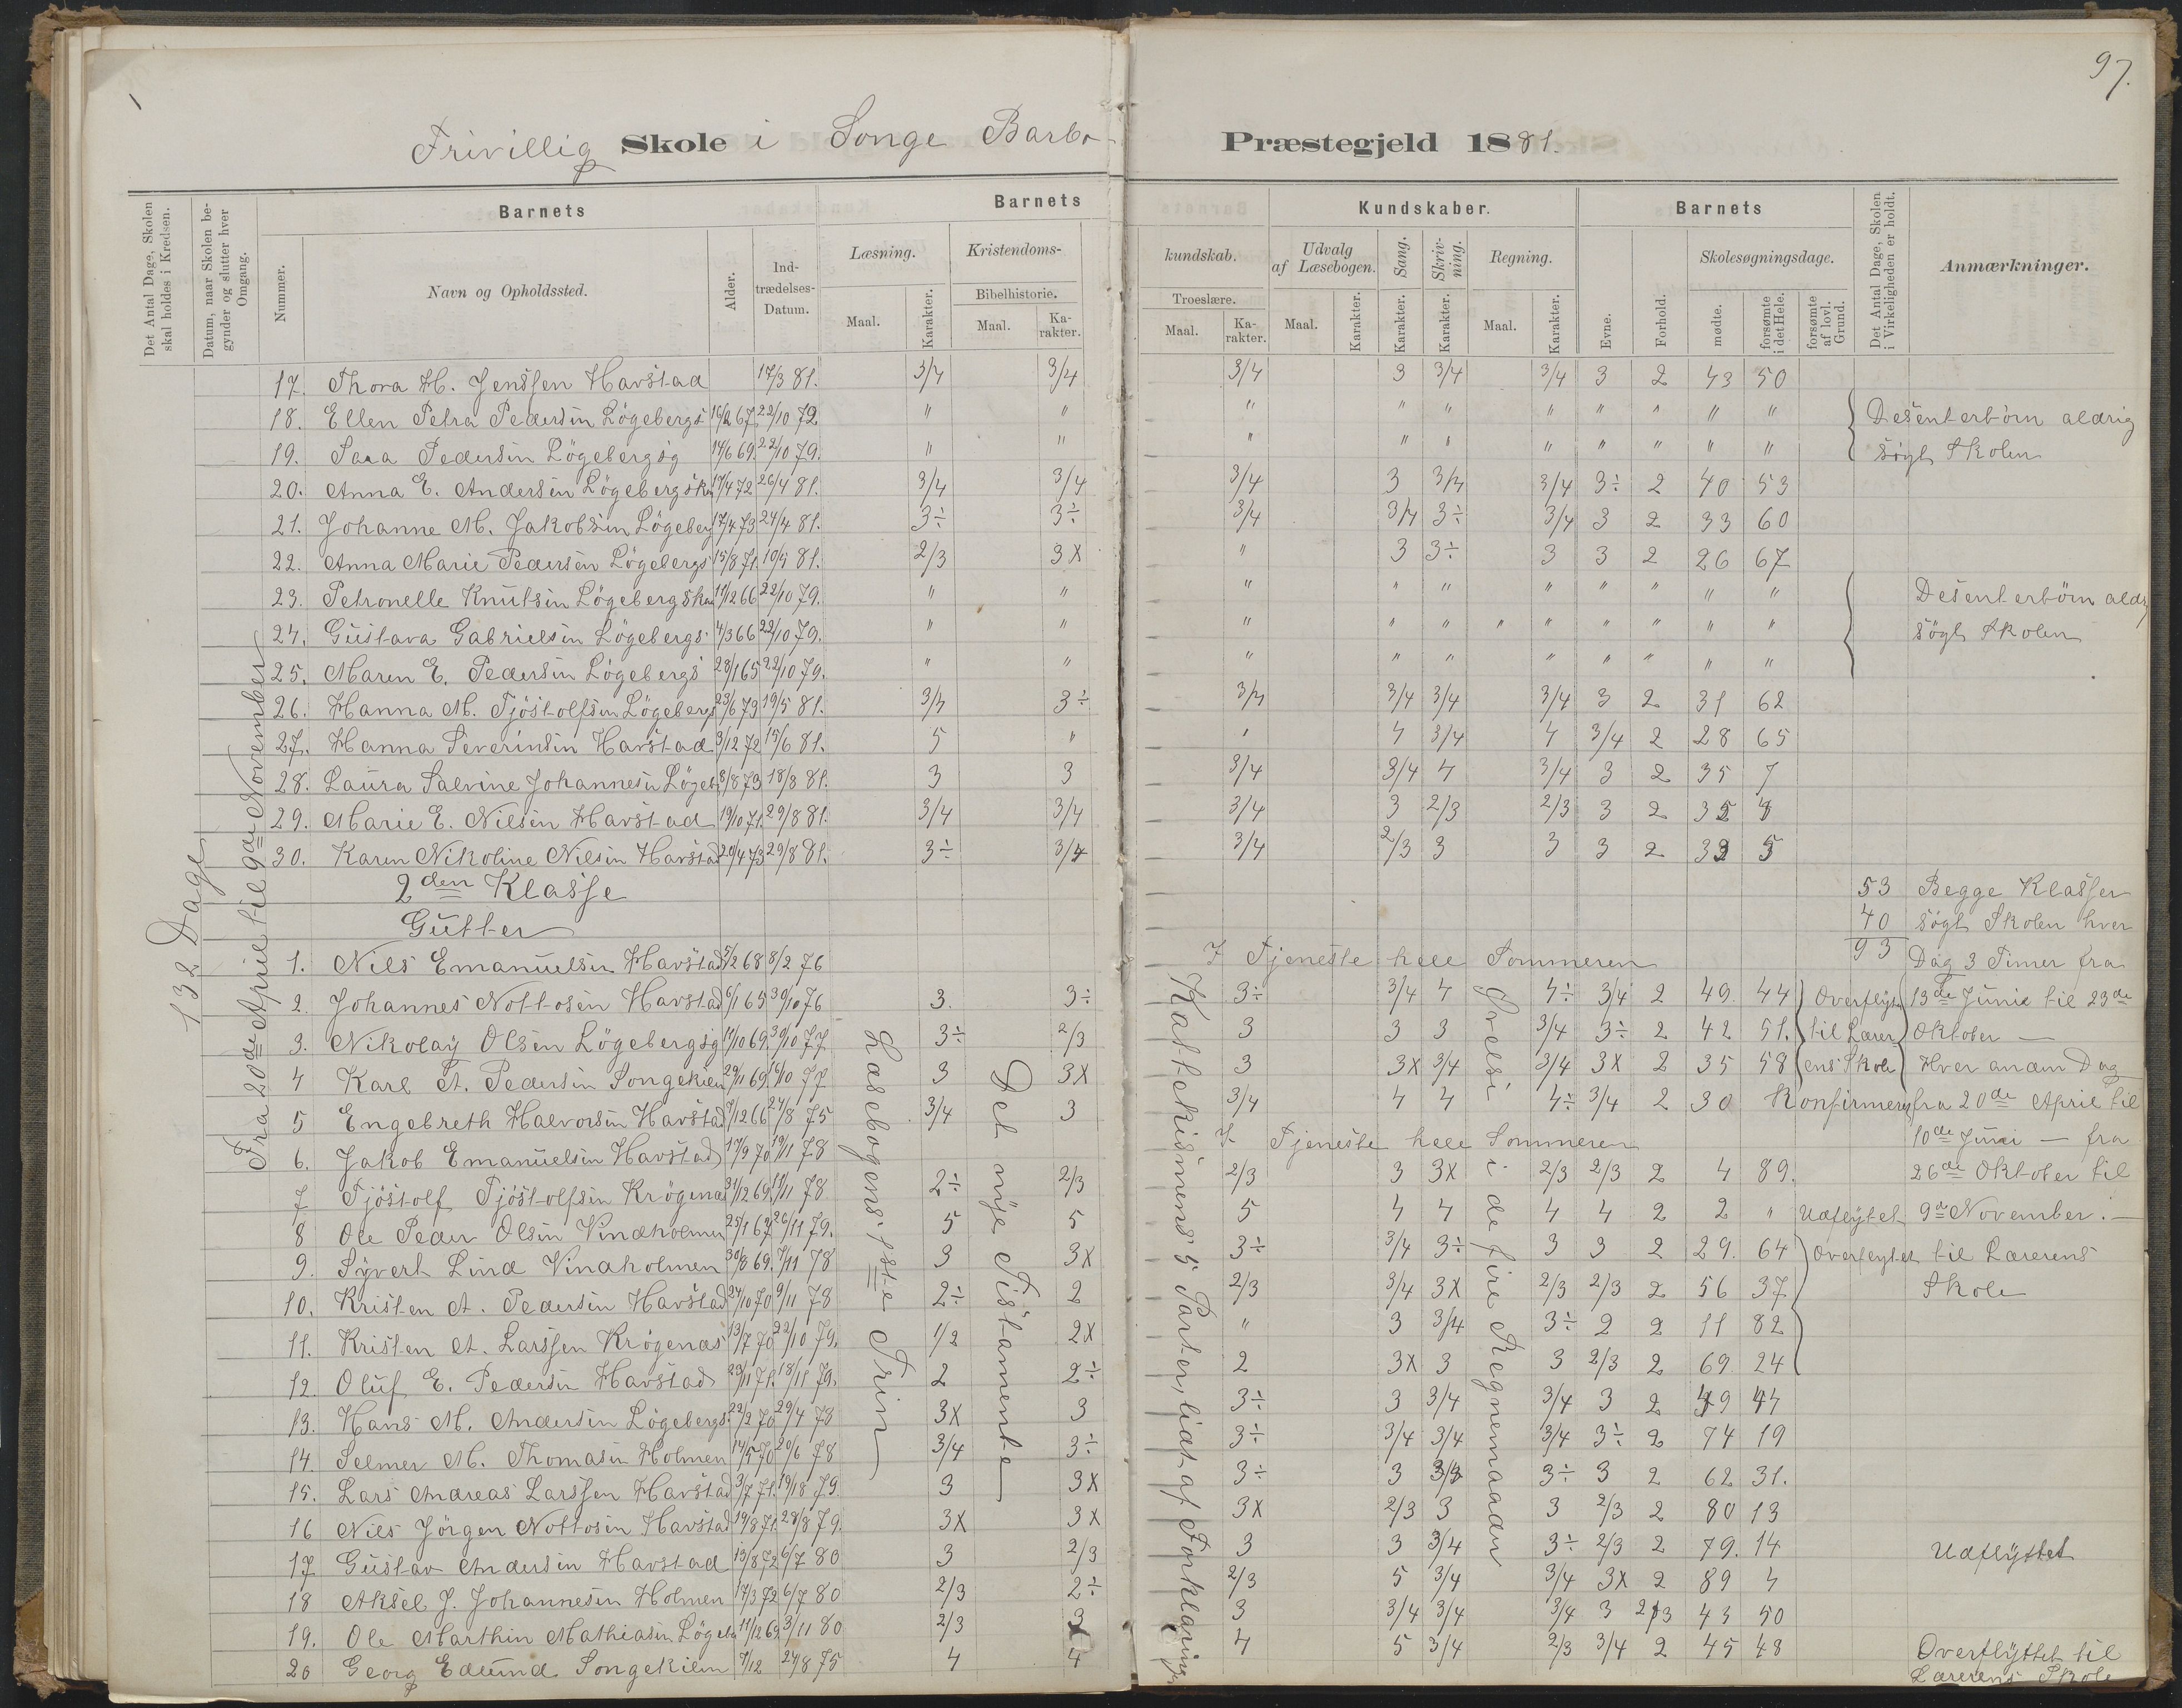 97.
Frivillig Skole i Songe Barbo Præstegjeld 1881.
Det Antal Dage, Skolen skal holdes i Kredsen.
Datum, naar Skolen begynder og slutter hver Omgang.
Barnets
Barnets Kundskaber.
Barnets
Det Antal Dage, Skolen i Virkeligheden er holdt.
Anmærkninger.
Nummer.
Navn og Opholdssted.
Alder.
Indtrædelses-Datum.
Læsning.
Kristendomskundskab.
Udvalg af Læsebogen.
Sang.
Skrivning.
Regning.
Evne.
Forhold.
Skolesøgningsdage.
Bibelhistorie.
Troeslære.
Maal. Karakter. Maal. Karakter. Maal. Karakter. Maal. Karakter. Karakter. Karakter. Maal. Karakter.
mødte. forsømte i det Hele. forsømte af lovl. Grund.
132 Dage
Fra 20de April til 9de November
17. Thora H. Jenssen Havstad 17/3 81. 3/4 3/4 3/4 3 3/4 3/4 3 2 43 50
18. Ellen Petra Pedersen Lögebergs 16/2 67 22/10 79 " " " " " " " " " " Desenterbörn aldrig
19. Sara Pedersen Lögebergsg 14/6 69. 22/10 79. " " " " " " " " " " sögt Skolen
20. Anna E. Andersen Lögebergskn 17/4 72 26/4 81. 3/4 3/4 3/4 3 3/4 3/4 3÷ 2 40 53
21. Johanne M. Jakobsen Lögeberg 17/4 73 24/4 81. 3÷ 3÷ 3/4 3/4 3÷ 3/4 3 2 33 60
22. Anna Marie Pedersen Lögebergs 15/8 71. 10/5 81. 2/3 3x " 3 3÷ 3 3 2 26 67
23. Petronelle Knutsen Lögebergskn 17/12 66 22/10 79. " " " " " " " " " " Desenterbörn aldr
24. Gustava Gabrielsen Lögebergs 4/3 66 22/10 79. " " " " " " " " " " " sögt Skolen
25. Maren E. Pedersen Lögebergs 28/1 65 22/10 79. " " " " " " " " " "
26. Hanna M. Tjöstolfsen Lögebergs 23/6 73 19/5 81. 3/4 3÷ 3/4 3/4 3/4 3/4 3 2 31 62
27. Hanna Severinsen Havstad 3/12 72 15/6 81. 5 " " 4 3/4 4 3/4 2 28 65
28. Laura Salvine Johannesen Lögeb 8/8 73 18/8 81. 3 3 3/4 3/4 4 3/4 3 2 35 7
29. Marie E. Nilsen Havstad 19/10 71. 29/8 81. 3/4 3/4 3/4 3 2/3 2/3 3 2 35 8
30. Karen Nikoline Nilsen Havstad 20/4 73 29/8 81. 3÷ 3/4 3/4 2/3 3 3 3 2 33 5
2den Klasse 53 Begge Klasser
Gutter 40 sögt Skolen hver
93
1. Nils Emanuelsen Havstad 5/2 68 8/2 76 I Tjeneste hele Sommeren Dag 3 Timer fra
2. Johannes Nottosen Havstad 6/1 65 30/10 76 3. 3÷ 3÷ 3/4 4 4÷ 3/4 2 49. 44 Overflyt 13de Juni til 23de
3. Nikolay Olsen Lögebergsg 11/10 69. 30/10 77 3÷ 2/3 3 3 3 3/4 3÷ 2 42 51. til Lærer Oktober —
4 Karl A. Pedersen Songekilen 29/11 69. 16/10 77 3 3x 3 3x 3/4 3/4 3x 2 35 58 ens Skole Hver anden Dag
5 Engebreth Halvorsen Havstad 9/12 66 24/8 75 3/4 3 3/4 4 4 4÷ 3/4 2 30 Konfirmeret fra 20de April til
6. Jakob Emanuelsen Havstad 17/9 70 19/11 78 I Tjeneste hele Sommeren 10de Juni — fra
7 Tjöstolf Tjöstolfsen Krögenæs 31/12 69. 19/11 78 2÷ 2/3 2/3 3 3x 2/3 2/3 2 4 89. 26de Oktober til
8 Ole Peder Olsen Vindholmen 25/1 67 26/11 79. 5 5 5 4 4 4 4 2 2 " Udflyttet 9de November. —
9. Syvert Lind Vindholmen 30/8 69. 7/11 78 3 3x 3÷ 3/4 3÷ 3 3 2 29. 64 Overflyttet til Lærerens
10. Kristen A. Pedersen Havstad 24/10 70 9/11 78 2÷ 2 2/3 3/4 3x 2/3 2/3 2 56 37 Skole
11. Kristen A. Larssen Krögenæs 13/7 70 22/10 79. 1/2 2x " 3 3/4 3÷ 2 2 11 82
12. Oluf E. Pedersen Havstad 29/11 71. 18/11 79. 2 2÷ 2 3x 3 3 2/3 2 69. 24
13. Hans M. Andersen Lögebergs 22/2 70 29/4 78 3x 3 3÷ 3 3/4 3/4 3 2 49 44
14. Selmer M. Thomasen Holmen 14/5 70 20/6 78 3/4 3÷ 3÷ 3/4 3/4 3/4 3÷ 2 74 19
15. Lars Andreas Larssen Havstad 3/7 71. 19/18 79. 3 3x 3÷ 3 3/3 3÷ 3 2 62 31.
16 Nils Jörgen Nottosen Havstad 19/8 71. 28/8 79. 3x 3x 3x 2/3 3 3 2/3 2 80 13
17. Gustav Andersen Havstad 13/8 72 6/7 80 3 2/3 3 3 3/4 3÷ 2/3 2 79. 14 Udflyttet
18 Aksel J. Johannesen Holmen 17/3 72 6/7 80 2/3 2÷ 2/3 5 3/4 3/4 3x 2 89 4
19. Ole Marthin Mathiasen Lögeb 11/12 69. 3/11 80 2/3 3 3 3/4 3/4 3/4 3 2/3 43 50
20 Georg Edvund Songekilen 7/12 24/8 75 4 4 4 5 3/4 2/3 3/4 2 45 48 Overflyttet til
Lærerens Skole
Læsebogens 1ste Trin
Det nye Testamente
Kattekismens 5 Parter, lidt af Forklaringen
Övelse i de fire Regnemaader